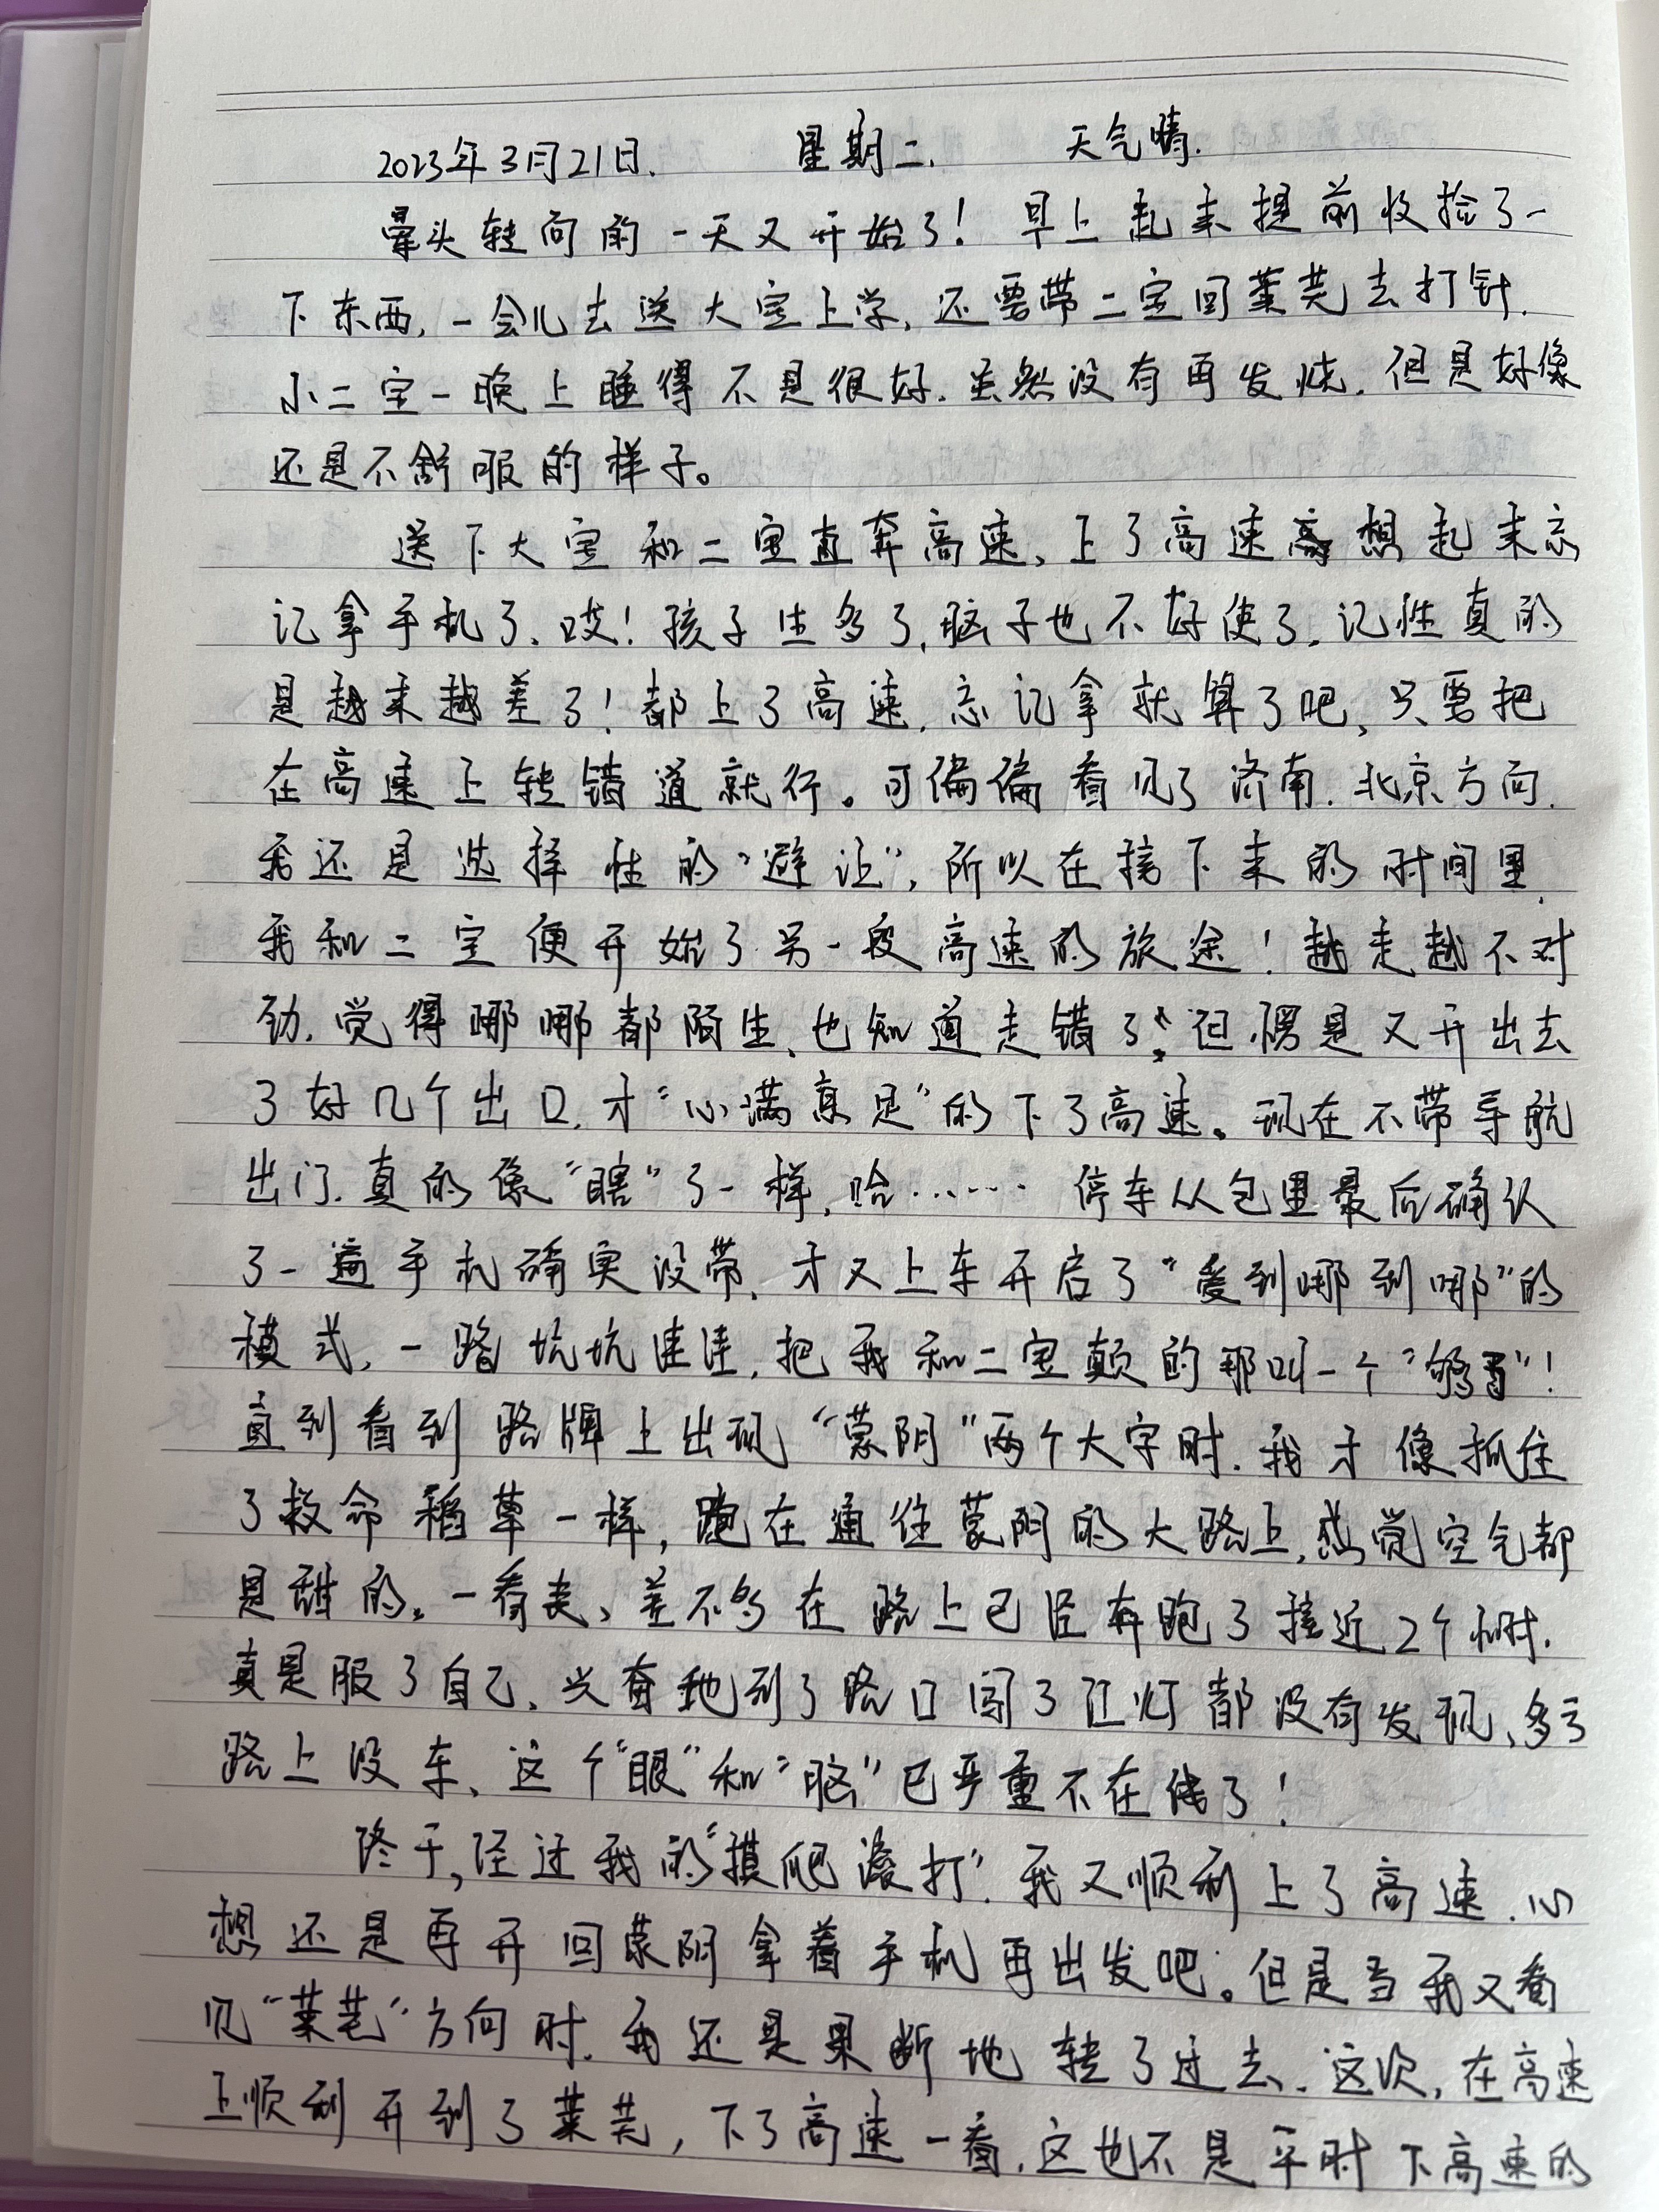 2023年3月21日. 星期二. 天气晴.
晕头转向的一天又开始了！早上起来提前收捡了一
下东西，一会儿去送大宝上学，还要带二宝回莱芜去打针.
小二宝一晚上睡得不是很好.虽然没有再发烧.但是好像
还是不舒服的样子。
送下大宝和二宝直奔高速、上了高速 想起来忘
记拿手机了、哎！孩子生多了，脑子也不好使了.记性真的
是越来越差了！都上了高速，忘记拿就算了吧、只要把
在高速上转错道就行。可偏偏看见了济南.北京方向.
我还是选择性的“避让”，所以在接下来的时间里，
我和二宝便开始了另一段高速的旅途！越走越不对
劲.觉得哪哪都陌生、也知道走错了，但愣是又开出去
了好几个出口.才“心满意足”的下了高速。现在不带导航
出门.真的像“瞎”了一样，哈…… 停车从包里最后确认
了一遍手机确实没带.才又上车开启了“爱到哪到哪”的
模式，一路坑坑洼洼，把我和二宝颠的那叫一个“够呛”！
直到看到路牌上出现“蒙阴”两个大字时.我才像抓住
了救命稻草一样，跑在通往蒙阴的大路上，感觉空气都
是甜的。一看表、差不多在路上已经奔跑了接近2个小时.
真是服了自己、兴奋地到了路口闯了红灯都没有发现、多亏
路上没车、这个“眼”和“脑”已严重不在线了！
终于，经过我的“摸爬滚打”.我又顺利上了高速.心
想还是再开回蒙阴拿着手机再出发吧。但是当我又看
见“莱芜”方向时.我还是果断地转了过去.这次，在高速
上顺利开到了莱芜，下了高速一看.这也不是平时下高速的